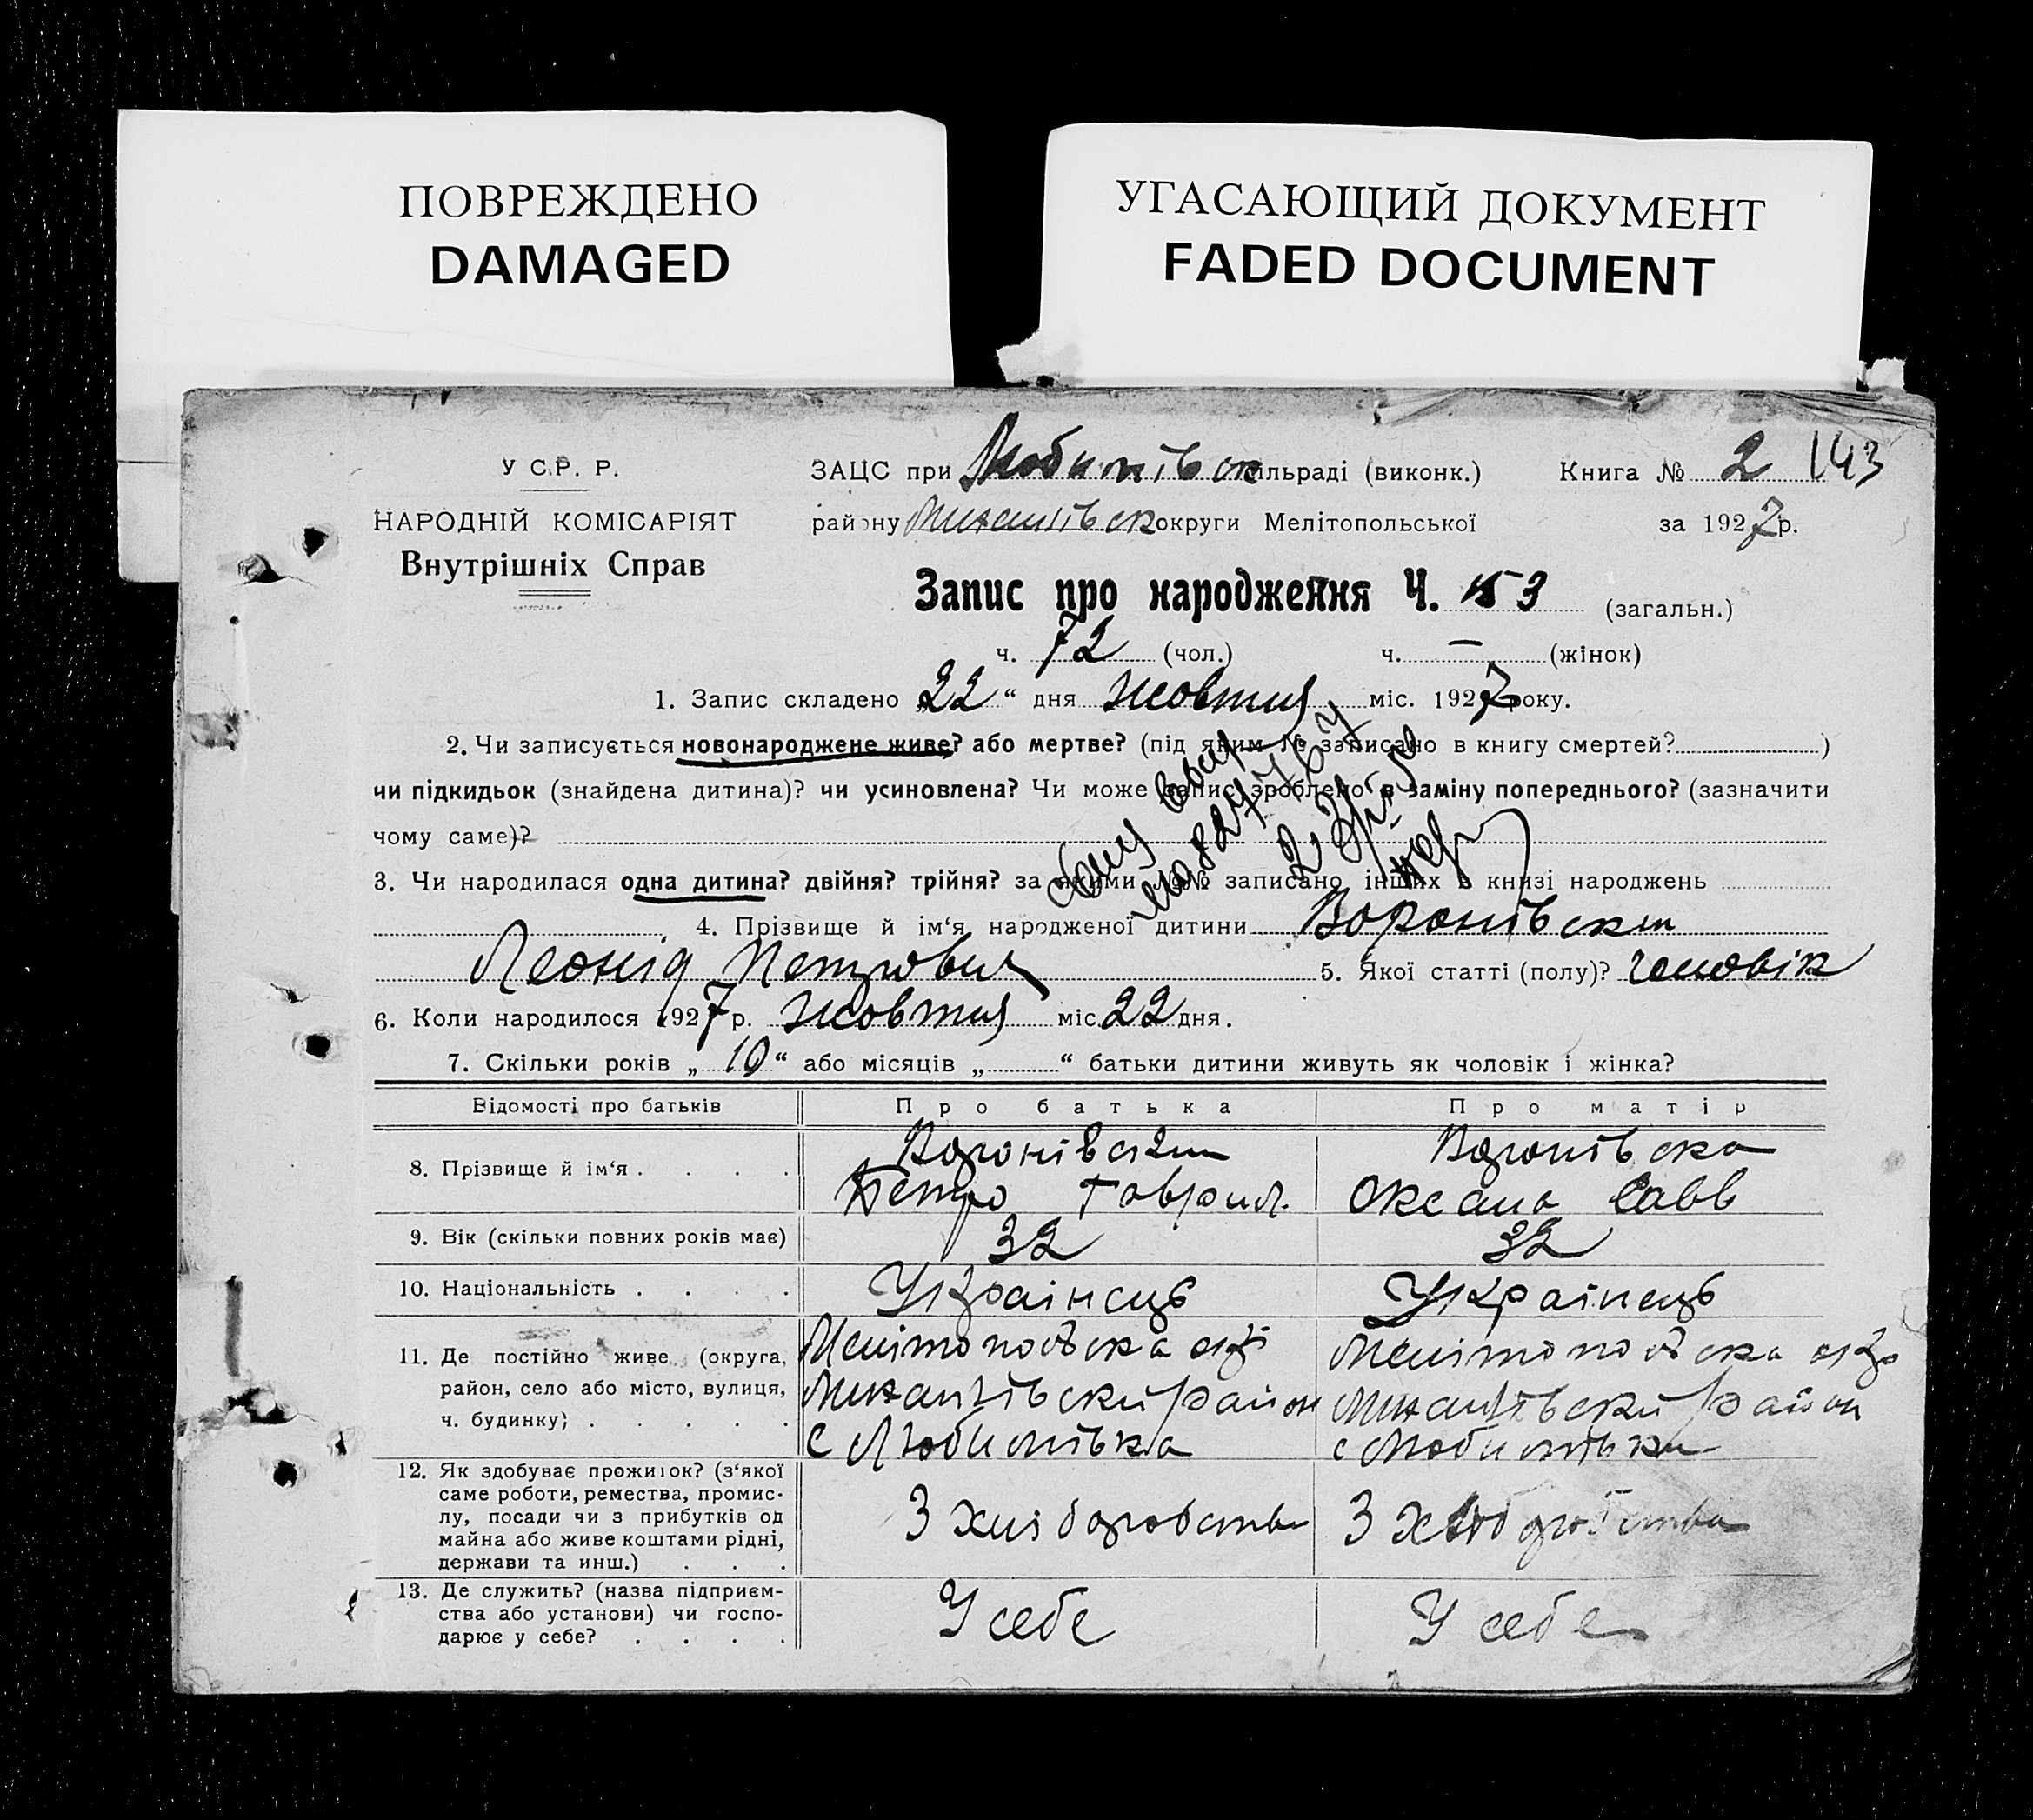 ПОВРЕЖДЕНО
DAMAGED
УГАСАЮЩИЙ ДОКУМЕНТ
FADED DOCUMENT
У С.Р. Р.
НАРОДНІЙ КОМІСАРІЯТ
Внутрішніх Справ
ЗАЦС при Любимівск сільраді (виконк.) Книга № 2 143
району Михайлівск округи Мелітопольської за 1927 р.
Запис про народження Ч. 153 (загальн.)
ч. 72 (чол.) ч. — (жінок)
1. Запис складено „22“ дня жовтня міс. 1927 року.
2. Чи записується новонароджене живе? або мертве? (під яким № записано в книгу смертей? )
чи підкидьок (знайдена дитина)? чи усиновлена? Чи може запис зроблено в заміну попереднього? (зазначити
чому саме)?
3. Чи народилася одна дитина? двійня? трійня? за якими №№ записано інших в книзі народжень
4. Прізвище й ім‘я народженої дитини Воронівский
Леонід Петрович 5. Якої статті (полу)? чоловік
6. Коли народилося 1927 р. жовтня міс. 22 дня.
7. Скільки років „ 10 “ або місяців „ “ батьки дитини живуть як чоловік і жінка?
Відомості про батьків Про батька Про матір
8. Прізвище й ім‘я . . . . Воронівский Воронівска
Петро Гаврил. Оксана Савв
9. Вік (скільки повних років має) 32 32
10. Національність . . . . Українець Українець
11. Де постійно живе (округа, Мелітопольска окр Мелітопольска окр
район, село або місто, вулиця, Михайлівский район Михайлівский район
ч. будинку) . . . . . с Любимівка с Любимівка
12. Як здобуває прожиток? (з‘якої
саме роботи, ремества, промис-
лу, посади чи з прибутків од З хліборобства З хліборобства
майна або живе коштами рідні,
держави та инш.) . . .
13. Де служить? (назва підприєм-
ства або установи) чи госпо- У себе У себе
дарює у себе? . . . .